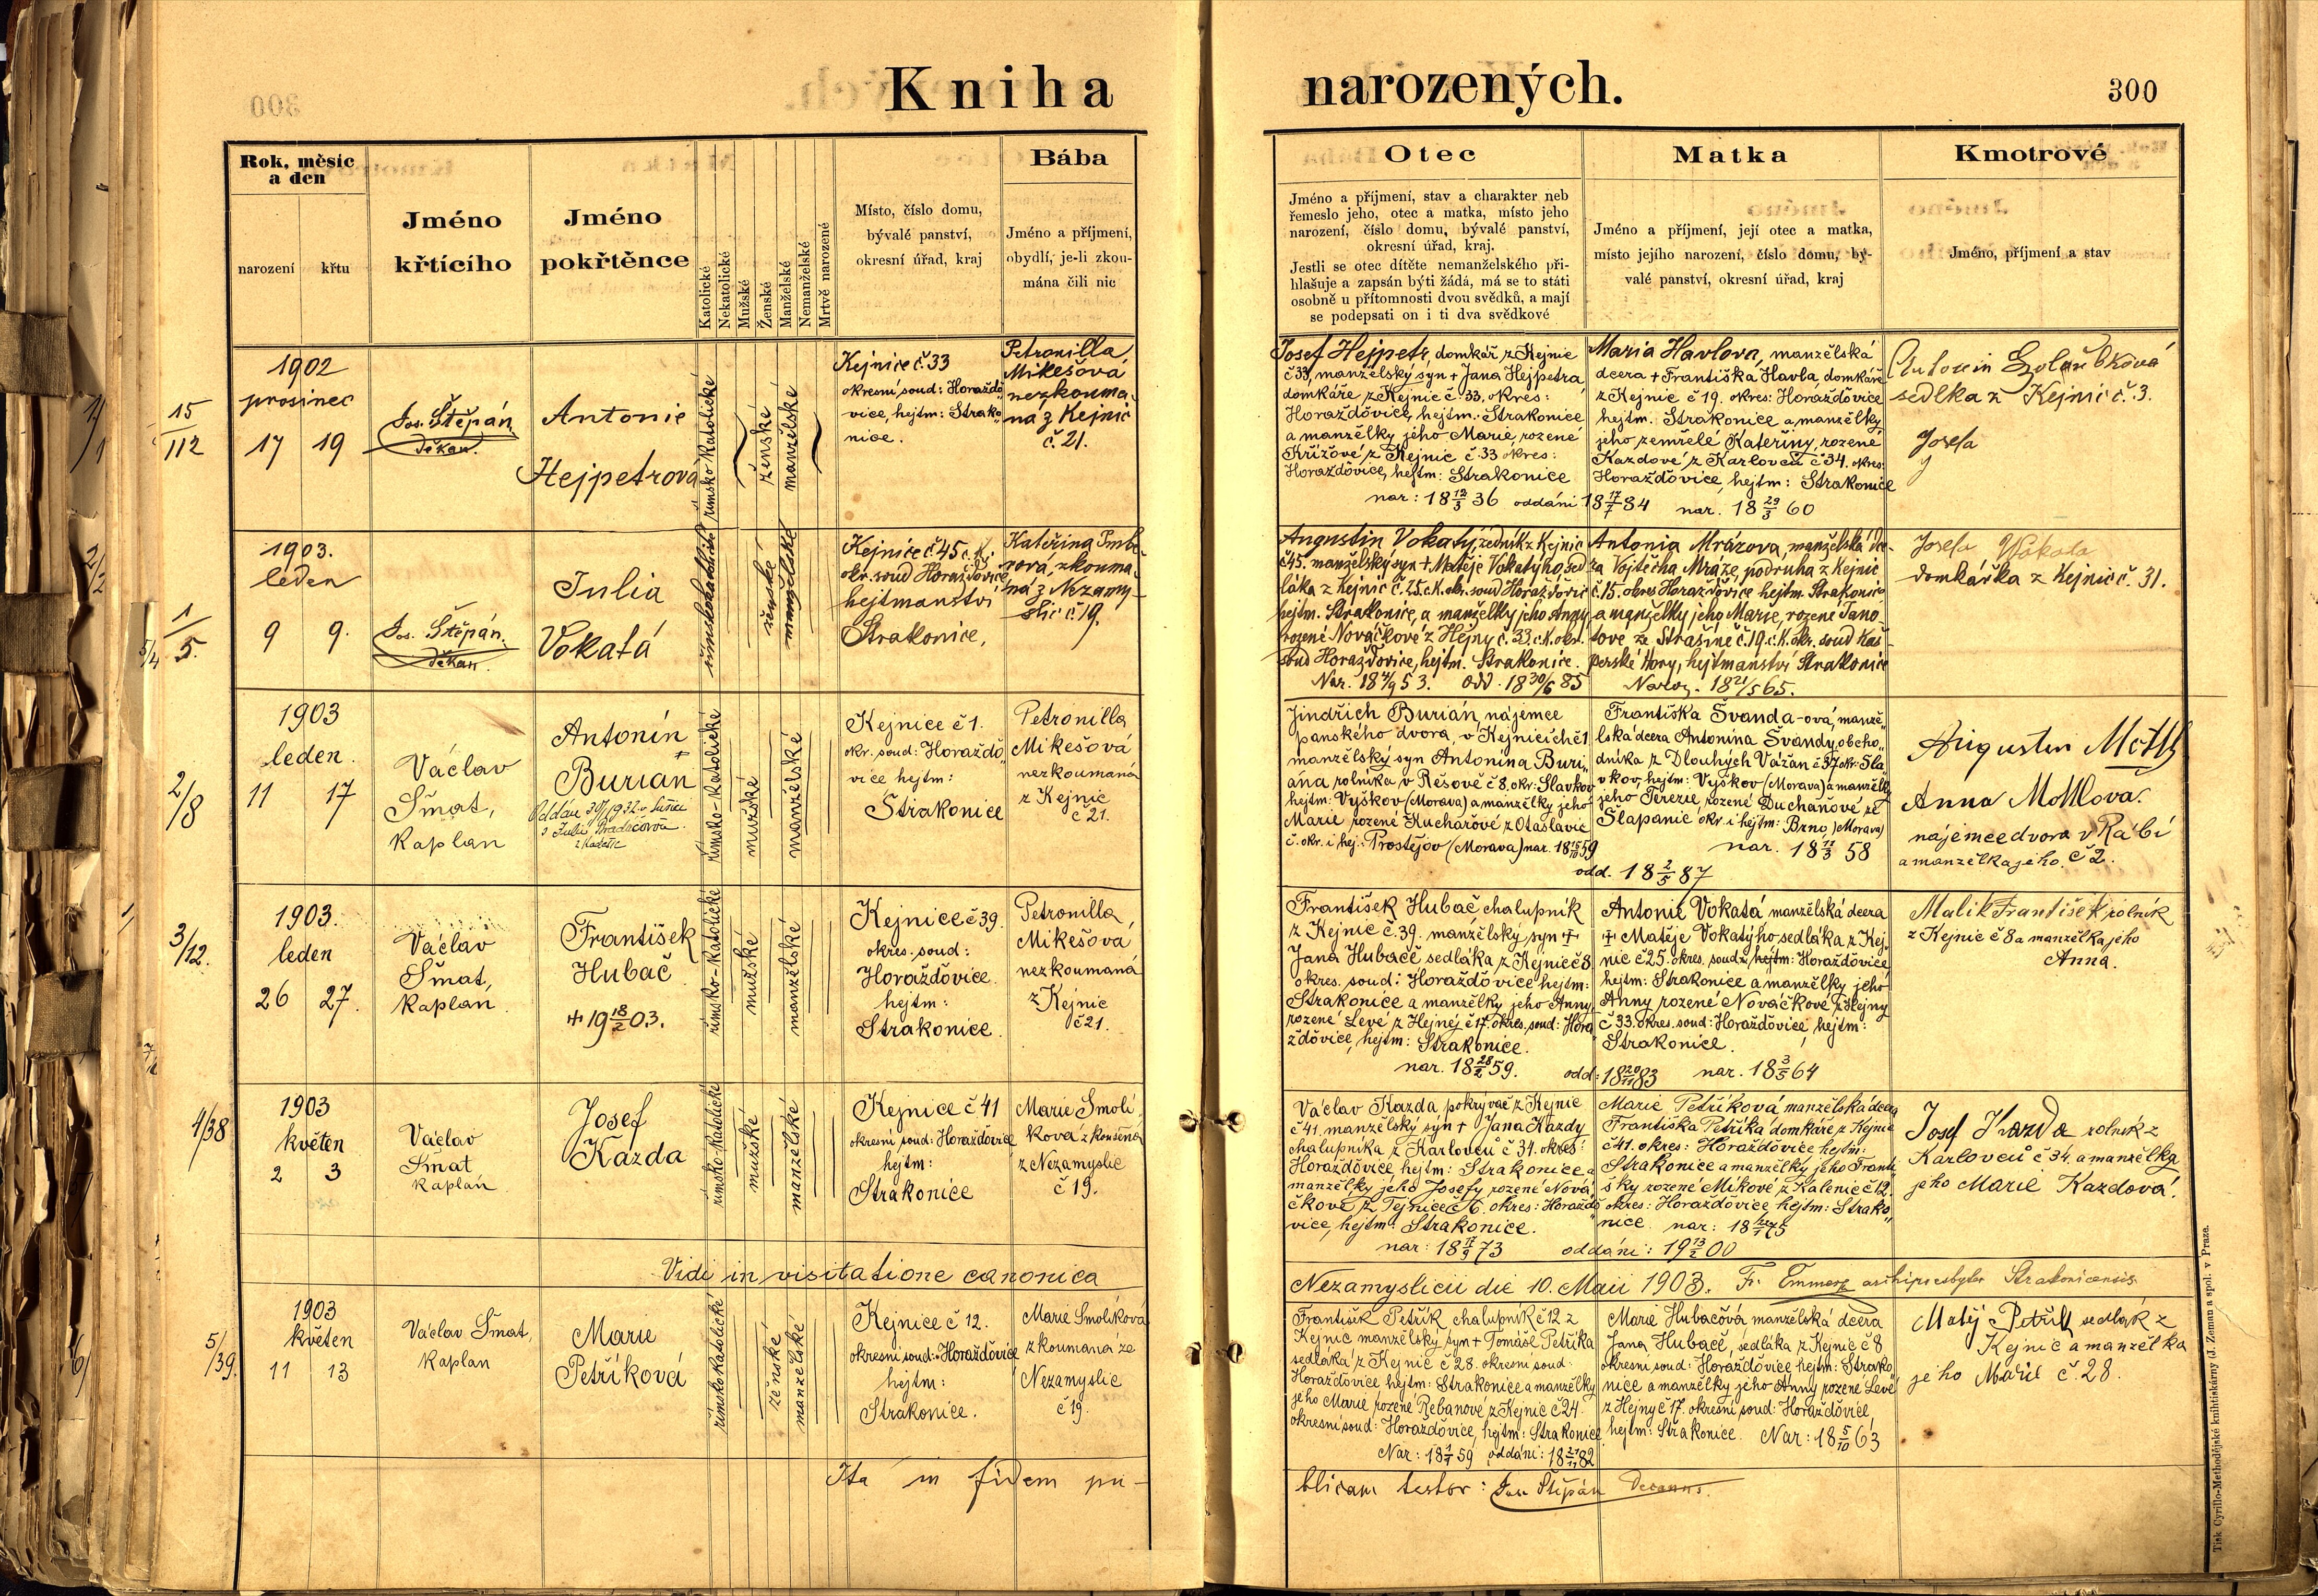 Kniha narozených.
300
Rok, měsíc
a den
narození
křtu
Jméno
křtícího
Jméno
pokřtěnce
Katolické
Nekatolické
Mužské
Ženské
Manželské
Nemanželské
Mrtvě narozené
Místo, číslo domu,
bývalé panství,
okresní úřad, kraj
Bába
Jméno a příjmení,
obydlí, je-li zkou-
mána čili nic
Otec
Jméno a příjmení, stav a charakter neb
řemeslo jeho, otec a matka, místo jeho
narození, číslo domu, bývalé panství,
okresní úřad, kraj.
Jestli se otec dítěte nemanželského při-
hlašuje a zapsán býti žádá, má se to státi
osobně u přítomnosti dvou svědků, a mají
se podepsati on i ti dva svědkové
Matka
Jméno a příjmení, její otec a matka,
místo jejího narození, číslo domu, bý-
valé panství, okresní úřad, kraj
Kmotrové
Jméno, příjmení a stav
15
112
1902
prosinec
17 19
Jos. Štěpán
děkan.
Antonie
Hejpetrová
římsko katolické
ženské
manželské
Kejnice č. 33
okresní soud: Horaždo
vice, hejtm: Strako
nice.
Petronilla
Mikešová
nezkouma
ná z Kejnic
č. 21.
Josef Hejpetr, domkář z Kejnic
č 33, manželský syn + Jana Hejpetra
domkáře z Kejnic č. 33, okres:
Horaždovice, hejtm. Strakonice
a manželky jeho Marie, rozené
Křížové z Kejnic č. 33 okres:
Horaždovice, hejtm: Strakonice
nar: 18 12/3 36 oddáni 18 17/7 84
Maria Havlova, manželská
dcera + Františka Havla domkáře
z Kejnic č 19. okres: Horaždovice
hejtm. Strakonice a manželky
jeho zemřelé Kateřiny, rozené
Kazdové z Karlovců č 34. okres:
Horaždovice, hejtm: Strakonice
nar. 18 29/3 60
sedlka z Kejnic č. 3.
Josefa
1
5.
1903.
leden
9 9.
Jos. Štěpán.
děkan.
Julia
Vokatá
římskokatolické
ženské
manželské
Kejnice č 45 c. k.
okr. soud Horažďovice
hejtmanství
Strakonice,
Kateřina
rová, zkouma
ná z Nezamy
slic č 19.
Augustin Vokatý, zedník z Kejnic
č 45. manželský syn + Matěje Vokatýho, sed
láka z Kejnic č. 25. c. k. okr. soud Horažďovice
hejtm. Strakonice, a manželky jeho Anny
rozené Nováčkové z Hejny č. 33. c. k. okr.
soud Horažďovice, hejtm. Strakonice.
Nar. 18 4/9 53. Odd. 18 30/6 85
Antonia Mrázova, manželská dce-
ra Vojtěcha Mráze, podruha z Kejnic
č. 15. okres Horažďovice hejtm. Strakonice
a manželky jeho Marie, rozené Jano-
tove ze Strašíně č. 19. c. k. okr. soud Kaš-
perské Hory, hejtmanství Strakonice
Naroz. 18 21/5 65.
Josefa Vokatá
domkářka z Kejnic č. 31.
2/8
1903
leden.
11 17
Václav
Šmat,
kaplan
Antonín
Burian
římsko-katolické
mužské
manželské
Kejnice č 1.
okr. soud: Horaždo
vice hejtm:
Strakonice
Petronilla
Mikešová
nezkoumaná
z Kejnic
č 21.
Jindřich Burián, nájemce
panského dvora v Kejnicích č 1
manželský syn Antonína Buri
ána, rolníka v Rešově č 8. okr: Slavkov
hejtm: Vyškov (Morava) a manželky jeho
Marie rozené Kuchařové z Otaslavic
č. okr. i hej.: Prostějov (Morava) nar. 18 15/10 59
odd. 18 2/5 87
Františka Švanda-ová, manže
lská dcera Antonína Švandy, obcho
dníka z Dlouhých Vážan č 37 okr: Sla
vkov, hejtm: Vyškov (Morava) a manželky
jeho Terezie, rozené Duchaňové ze
Šlapanic okr. i hejtm: Brno (Morava)
nar. 18 11/3 58
Augustin Mottl
Anna Mottlova.
nájemce dvora v Rábí
a manželka jeho. č 2.
3/12.
1903.
leden
26 27.
Václav
Šmat,
kaplan
František
Hubač
+ 19 18/2 03.
římsko-katolické
mužské
manželské
Kejnice č 39.
okres. soud:
Horaždovice.
hejtm:
Strakonice.
Petronilla
Mikešová
nezkoumaná
z Kejnic
č 21.
František Hubač chalupník
z Kejnic č. 39. manželský syn +
Jana Hubače sedláka z Kejnic č 8
okres. soud: Horaždovice hejtm:
Strakonice a manželky jeho Anny
rozené Levé z Hejnej č 17. okres. soud: Hora
ždovice, hejtm: Strakonice.
nar. 18 28/2 59. odd: 18 20/11 83
Antonie Vokatá manželská dcera
+ Matěje Vokatýho sedláka z Kej
nic č 25. okres. soudu, hejtm: Horaždovice
hejtm: Strakonice a manželky jeho
Anny rozené Nováčkové z Hejny
č 33. okres. soud: Horaždovice, hejtm:
Strakonice.
nar. 18 3/5 64
Malík František rolník
z Kejnic č 8 a manželka jeho
Anna.
4/38
1903
květen
2 3
Václav
Šmat
kaplan
Josef
Kazda
římsko-katolické
mužské
manželské
Kejnice č 41
okresní soud: Horaždovice
hejtm:
Strakonice
Marie Smolí
ková zkoušená
z Nezamyslic
č 19.
Václav Kazda, pokrývač z Kejnic
č 41. manželský syn + Jana Kazdy
chalupníka z Karlovců č 34. okres:
Horaždovice hejtm: Strakonice a
manželky jeho Josefy rozené Nová
čkové z Tejnice č 6. okres: Horaždo
vice, hejtm: Strakonice.
nar: 18 17/9 73 oddáni: 19 13/2 00
Marie Petříková manželská dcera
Františka Petříka domkáře z Kejnic
č 41. okres: Horaždovice hejtm:
Strakonice a manželky jeho Franti
šky rozené Míkové z Kalenic č 12.
okres: Horaždovice hejtm: Strako
nice.
Josef Kazda rolník z
Karlovců č 34. a manželka
jeho Marie Kazdová.
Vidi in visitatione canonica
Nezamyslicii die 10. Maii 1903. Fr. archipresbyter Strakonicensis
5/39.
1903
květen
11 13
Václav Šmat,
kaplan
Marie
Petříková
římsko katolické
ženské
manželské
Kejnice č 12.
okresní soud: Horaždovice
hejtm:
Strakonice.
Marie Smolíková
zkoumaná ze
Nezamyslic
č 19.
František Petřík chalupník č 12 z
Kejnic manželský syn + Tomáše Petříka
sedláka z Kejnic č 28. okresní soud:
Horaždovice hejtm: Strakonice a manželky
jeho Marie rozené Řebanové z Kejnic č 24.
okresní soud: Horaždovice, hejtm: Strakonice
Nar: 18 1/1 59 oddáni: 18 21/11 82
Marie Hubačová manželská dcera
Jana Hubače, sedláka z Kejnic č 8
okresní soud: Horaždovice hejtm: Strako
nice a manželky jeho Anny rozené Levé
z Hejny č 17. okresní soud: Horaždovice,
hejtm: Strakonice. Nar: 18 5/10 63
Matěj Petřík sedlák z
Kejnic a manželka
jeho Marie č. 28.
Ita in fidem pu-
blicam testor: Jos. Štěpán Decanus.
Tisk Cyrillo-Methodějské knihtiskárny (J. Zeman a spol. v Praze.